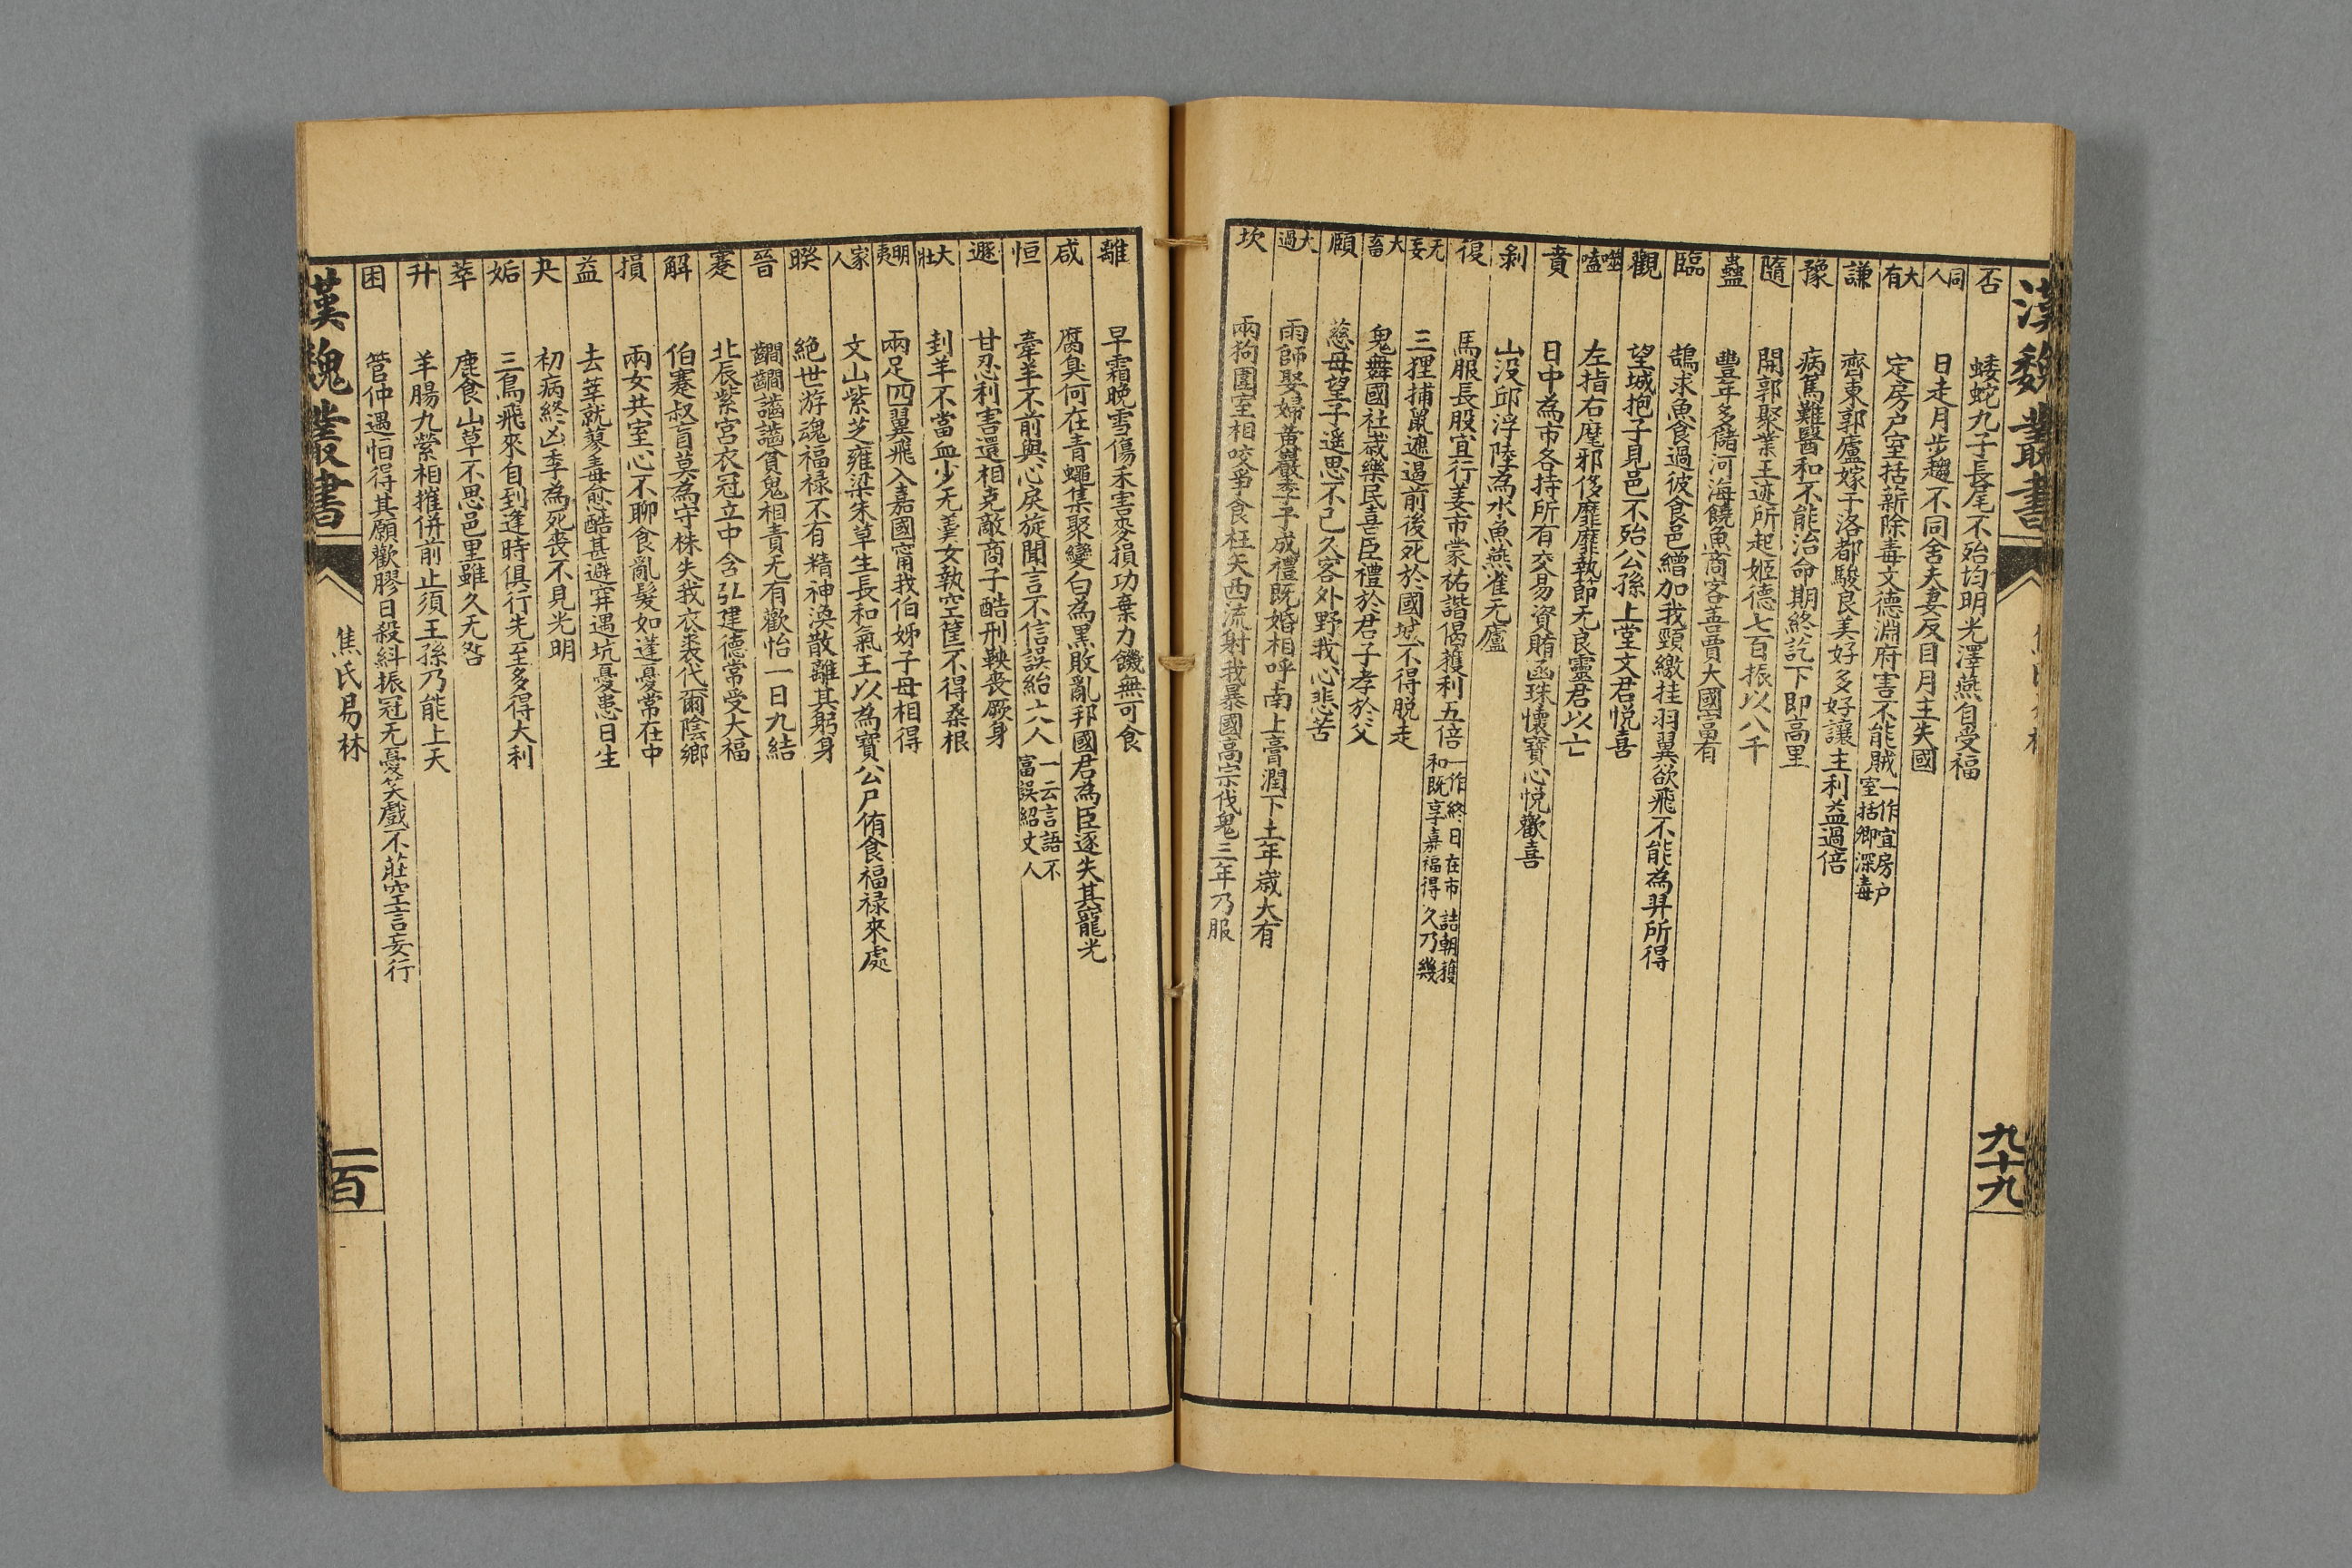 漢魏叢書
九十九
否 蜲蛇九子長尾不殆均明光澤燕自受福
同人 日走月步趨不同舍夫妻反目月主失國
大有 定房户室括薪除毒文德淵府害不能賊一作宜房户室括卿深毒
謙 齊東郭廬嫁子洛都駿良美好多好讓主利益過倍
豫 病篤難醫和不能治命期終訖下即高里
隨 開郭聚業王迹所起姬德七百振以八千
蠱 豐年多儲河海饒魚商客善賈大國富有
臨 鵠求魚食過彼食邑繒加我頸繳挂羽翼欲飛不能為羿所得
觀 望城抱子見邑不殆公孫上堂文君悦喜
噬嗑 左指右麾邪侈靡靡執節无良靈君以亡
賁 日中為市各持所有交易資賄函珠懷寶心悦歡喜
剝 山没邱浮陸為水魚燕雀无廬
復 馬服長股宜行善市蒙祐諧偶獲利五倍一作終日在市詰朝獲和既享嘉福得久乃幾
无妄 三狸捕鼠遮遏前後死於國城不得脱走
大畜 鬼舞國社歲樂民喜臣禮於君子孝於父
頤 慈母望子遥思不已久客外野我心悲苦
大過 雨師娶婦黄巖季子成禮既婚相呼南上膏潤下土年歲大有
坎 兩狗圖室相咬争食枉矢西流射我暴國高宗伐鬼三年乃服
離 早霜晚雪傷禾害麥損功棄力饑無可食
咸 腐臭何在青蠅集聚變白為黑敗亂邦國君為臣逐失其寵光
恒 牽羊不前與心戾旋聞言不信誤紿六人一云言語不富誤紹丈人
遯 甘忍利害還相克敵商子酷刑鞅喪厥身
大壯 封羊不當血少无羹女執空筐不得桑根
明夷 兩足四翼飛入嘉國甯我伯姊子母相得
家人 文山紫芝雍梁朱草生長和氣王以為寶公尸侑食福禄來處
睽 絶世游魂福禄不有精神涣散離其躬身
晉 齺齺齧齧貧鬼相責无有歡怡一日九結
蹇 北辰紫宫衣冠立中含弘建德常受大福
解 伯蹇叔盲莫為守株失我衣裘代爾陰鄉
損 兩女共室心不聊食亂髮如蓬憂常在中
益 去莘就蓼毒愈酷甚避穽遇坑憂患日生
夬 初病終凶季為死喪不見光明
姤 三鳥飛來自到逢時俱行先至多得大利
萃 鹿食山草不思邑里雖久无咎
升 羊腸九縈相摧併前止須王孫乃能上天
困 管仲遇恒得其願歡膠日殺糾振冠无憂笑戲不莊空言妄行
漢魏叢書
焦氏易林
一百